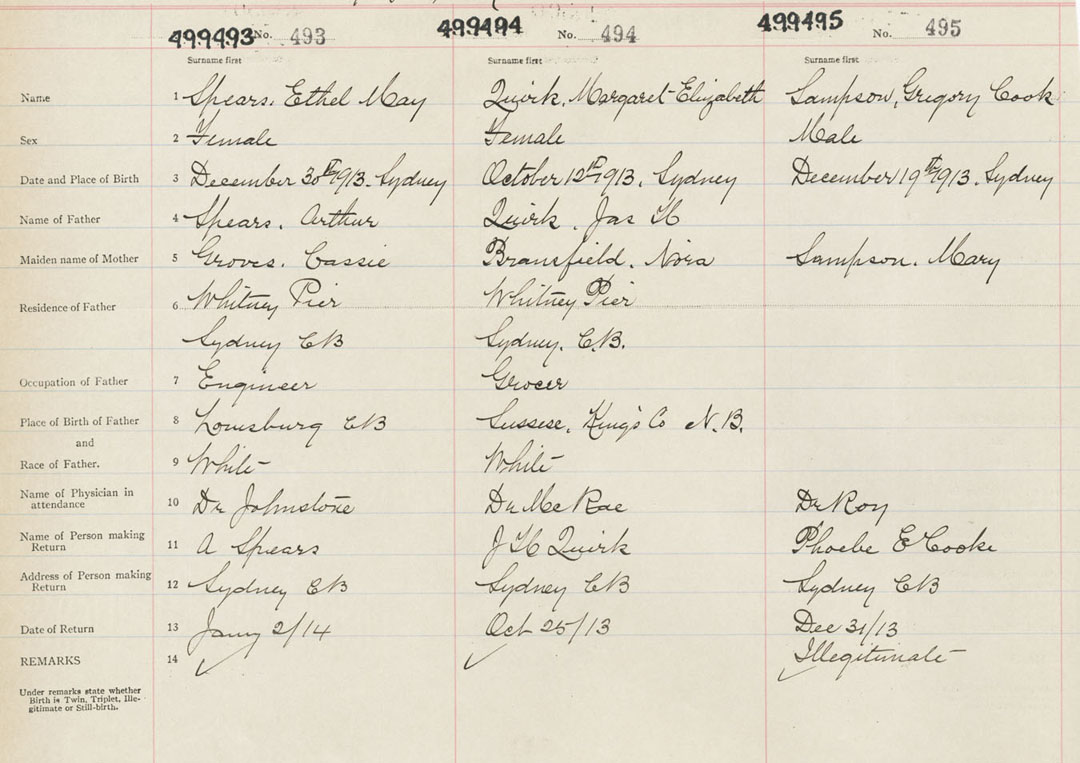 499493 No. 493 499494 No. 494 499495 No. 495
Surname first Surname first Surname first
Name 1 Spears, Ethel May Quirk, Margaret Elizabeth Sampson, Gregory Cook
Sex 2 Female Female Male
Date and Place of Birth 3 December 30th 1913. Sydney October 12th 1913, Sydney December 19th 1913. Sydney
Name of Father 4 Spears. Arthur Quirk, Jas H
Maiden name of Mother 5 Groves. Cassie Bransfield. Nora Sampson. Mary
Residence of Father 6 Whitney Pier Whitney Pier
Sydney CB Sydney. C.B.
Occupation of Father 7 Engineer Grocer
Place of Birth of Father 8 Louisburg CB Sussese, King's Co N.B.
and
Race of Father. 9 White White
Name of Physician in
attendance 10 Dr Johnstone Dr McRae Dr Roy
Name of Person making
Return 11 A Spears J H Quirk Phoebe E Cooke
Address of Person making
Return 12 Sydney CB Sydney CB Sydney CB
Date of Return 13 Jany 2/14 Oct 25/13 Dec 31/13
REMARKS 14 Illegitimate
Under remarks state whether
Birth is Twin, Triplet, Ille-
gitimate or Still-birth.